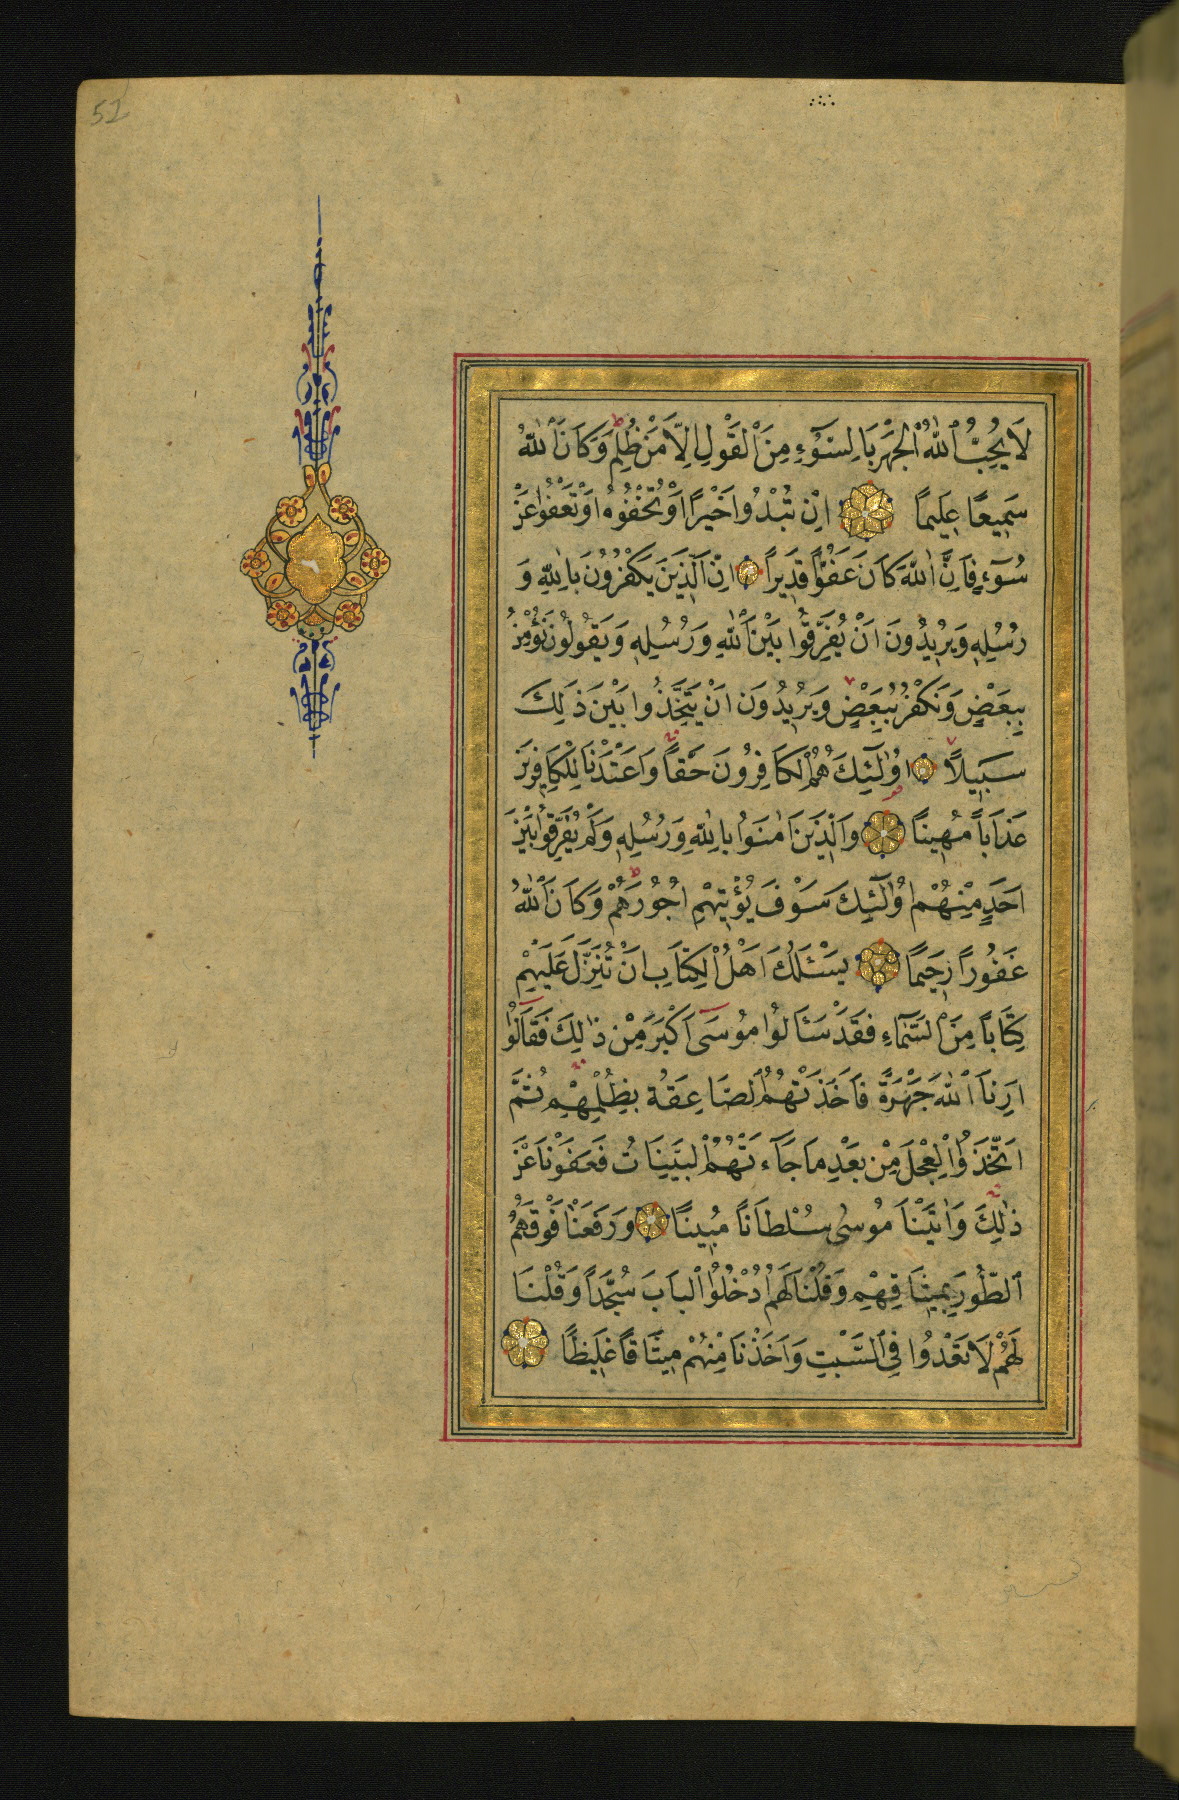 52
لَا يُحِبُّ ٱللهُ ٱلْجَهْرَ بِالسُّوٓءِ مِنَ ٱلْقَوْلِ اِلَّا مَنْ ظُلِمَ وَكَانَ ٱللهُ
سَمِيعًا عَلِيمًا اِنْ تُبْدُوا خَيْرًا اَوْ تُخْفُوهُ اَوْ تَعْفُوا عَنْ
سُوٓءٍ فَاِنَّ ٱللهَ كَانَ عَفُوًّا قَدِيرًا اِنَّ ٱلَّذِينَ يَكْفُرُونَ بِاللهِ وَ
رُسُلِهِ وَيُرِيدُونَ اَنْ يُفَرِّقُوا بَيْنَ ٱللهِ وَرُسُلِهِ وَيَقُولُونَ نُؤْمِنُ
بِبَعْضٍ وَنَكْفُرُ بِبَعْضٍ وَيُرِيدُونَ اَنْ يَتَّخِذُوا بَيْنَ ذٰلِكَ
سَبِيلًا اُولٰٓئِكَ هُمُ ٱلْكَافِرُونَ حَقًّا وَاَعْتَدْنَا لِلْكَافِرِينَ
عَذَابًا مُهِينًا وَٱلَّذِينَ اٰمَنُوا بِاللهِ وَرُسُلِهِ وَلَمْ يُفَرِّقُوا بَيْنَ
اَحَدٍ مِنْهُمْ اُولٰٓئِكَ سَوْفَ يُؤْتِيهِمْ اُجُورَهُمْ وَكَانَ ٱللهُ
غَفُورًا رَحِيمًا يَسْئَلُكَ اَهْلُ ٱلْكِتَابِ اَنْ تُنَزِّلَ عَلَيْهِمْ
كِتَابًا مِنَ ٱلسَّمَآءِ فَقَدْ سَئَالُوا مُوسَىٓ اَكْبَرَ مِنْ ذٰلِكَ فَقَالُوٓا
اَرِنَا ٱللهَ جَهْرَةً فَاَخَذَتْهُمُ ٱلصَّاعِقَةُ بِظُلْمِهِمْ ثُمَّ
ٱتَّخَذُوا ٱلْعِجْلَ مِنْ بَعْدِ مَا جَآءَتْهُمُ ٱلْبَيِّنَاتُ فَعَفَوْنَا عَنْ
ذٰلِكَ وَاٰتَيْنَا مُوسٰى سُلْطَانًا مُبِينًا وَرَفَعْنَا فَوْقَهُمُ
ٱلطُّورَ بِمِيثَاقِهِمْ وَقُلْنَا لَهُمُ ٱدْخُلُوا ٱلْبَابَ سُجَّدًا وَقُلْنَا
لَهُمْ لَا تَعْدُوا فِي ٱلسَّبْتِ وَاَخَذْنَا مِنْهُمْ مِيثَاقًا غَلِيظًا